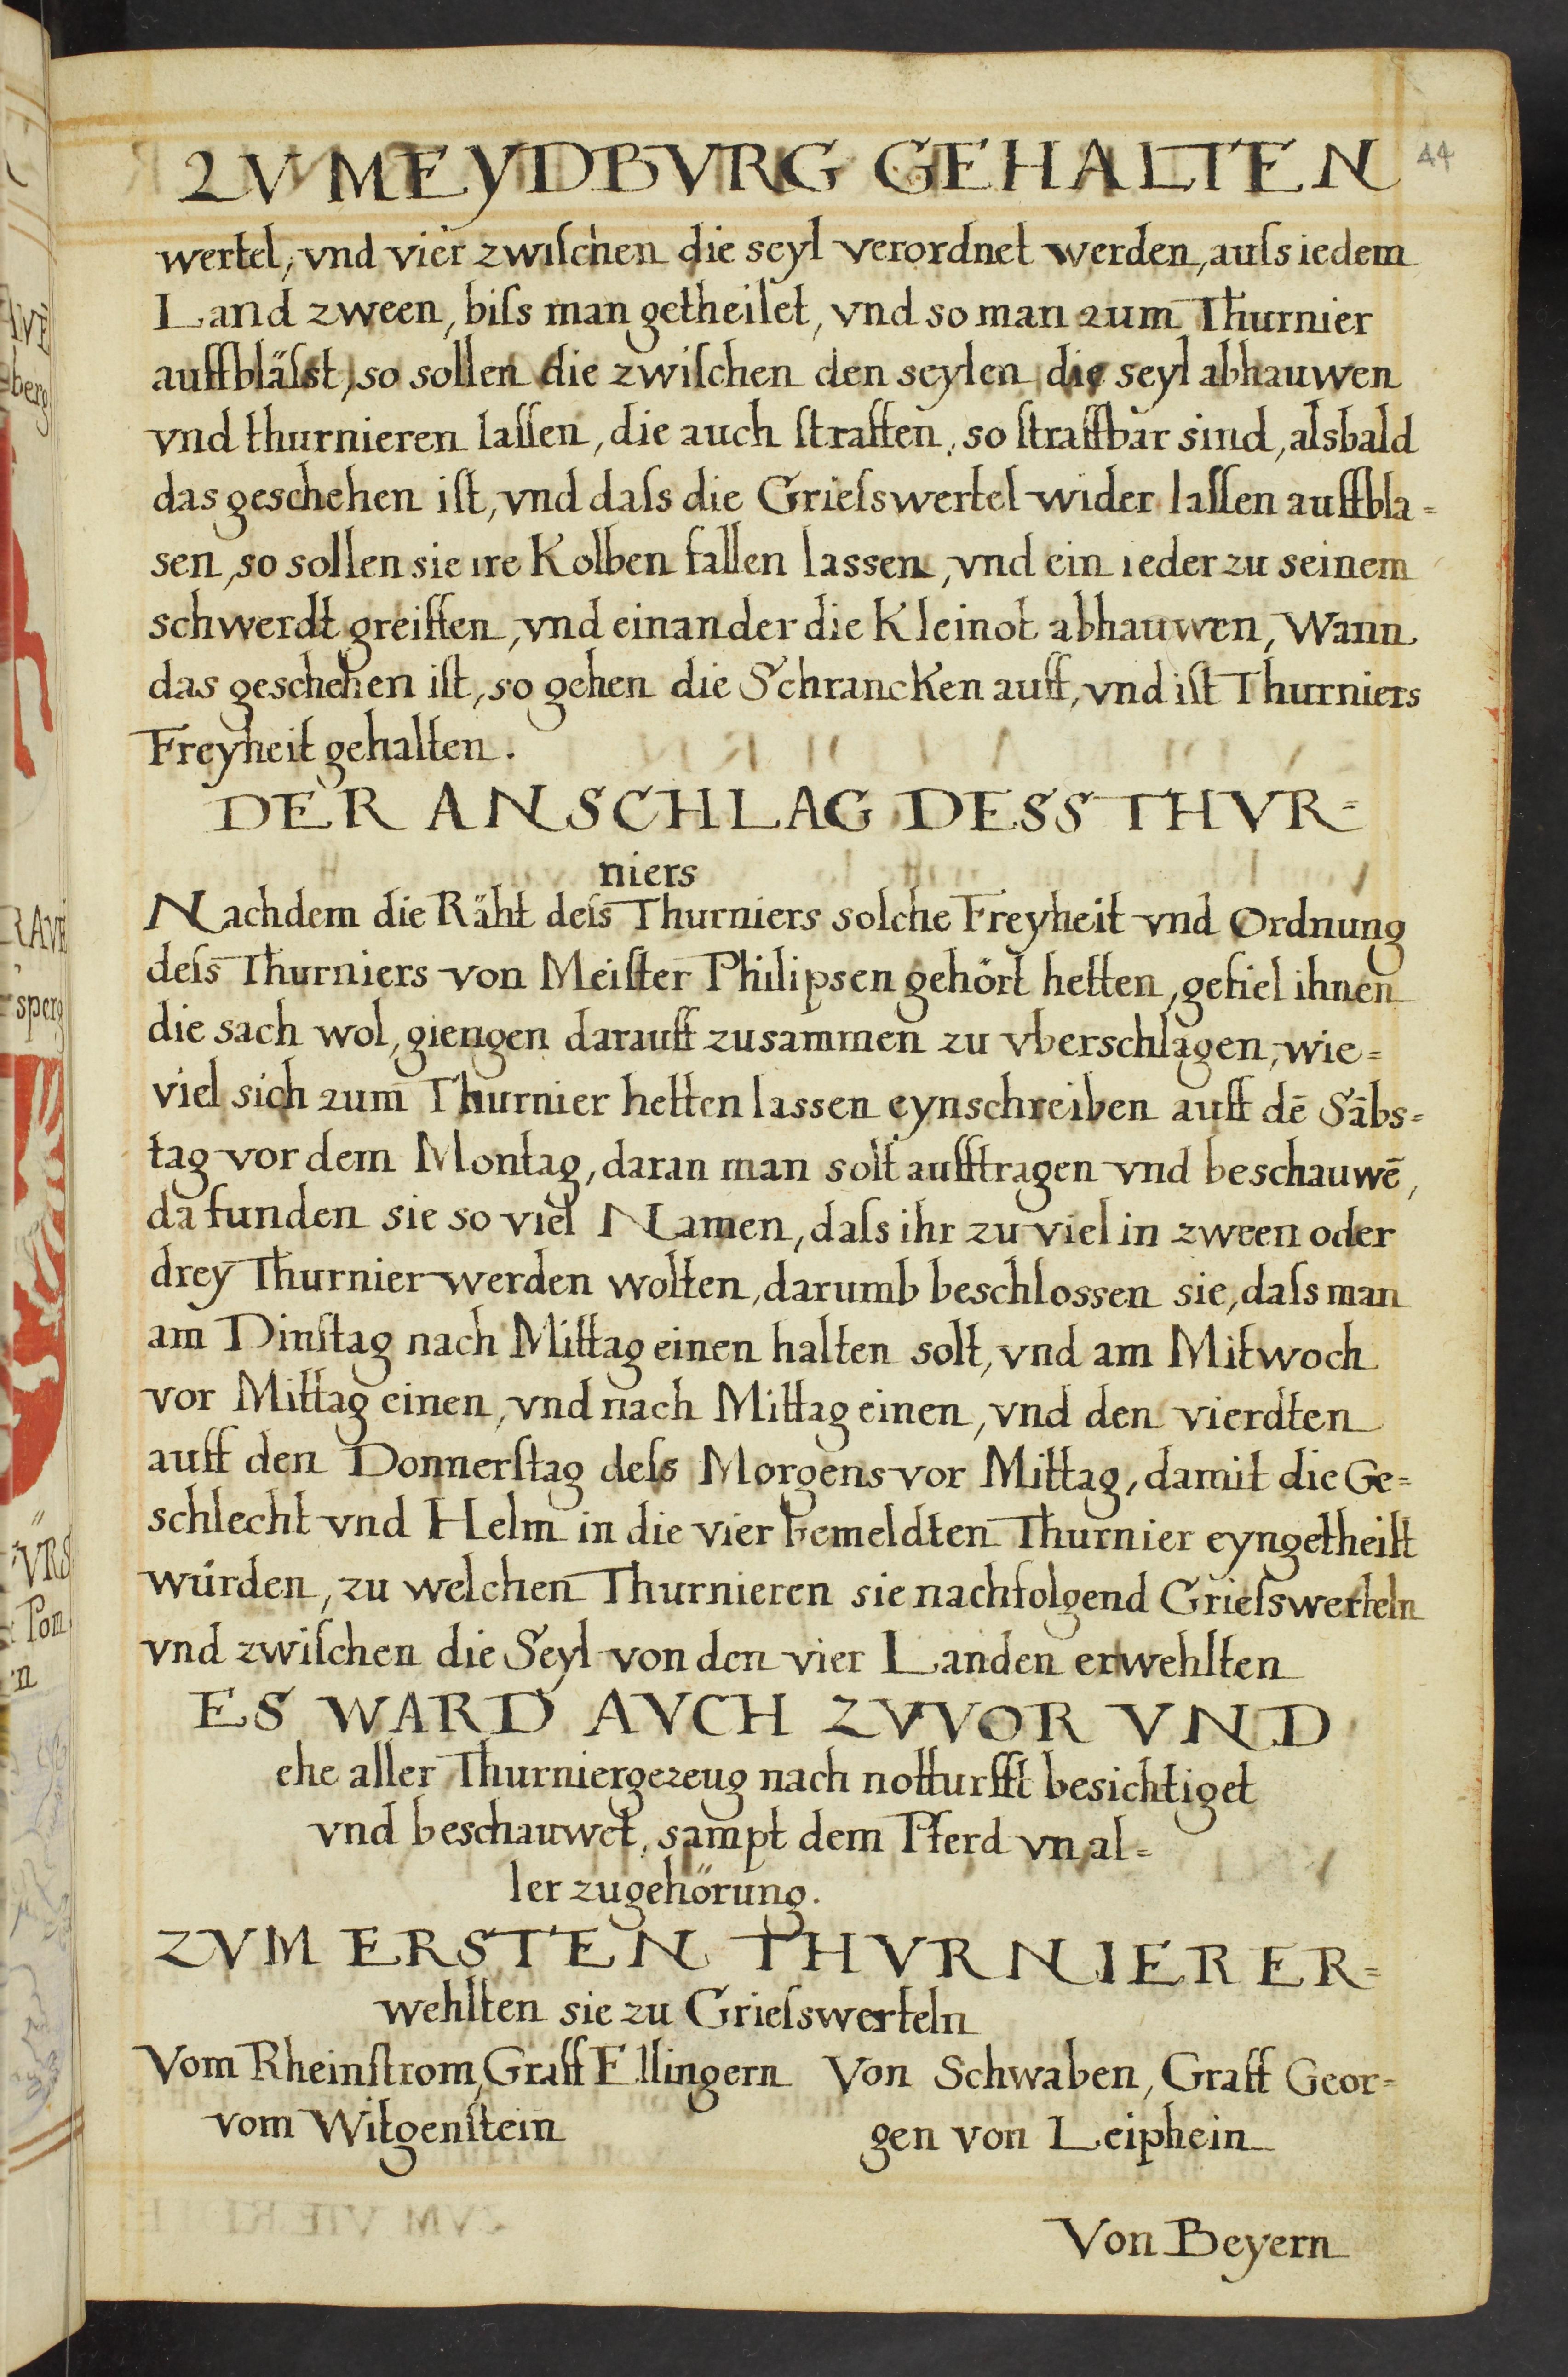 ZV MEYDBVRG GEHALTEN
44
wertel, vnd vier zwiſchen die seyl verordnet werden, auſs iedem
Land zween, biſs man getheilet, vnd so man zum Thurnier
auffbläſst, so sollen die zwiſchen den seylen die seyl abhauwen
vnd thurnieren laſſen, die auch ſtraffen, so ſtraffbar sind, alsbald
das geschehen iſt, vnd daſs die Grieſswertel wider laſſen auffbla=
sen, so sollen sie ire Kolben fallen lassen, vnd ein ieder zu seinem
schwerdt greiffen, vnd einander die Kleinot abhauwen, Wann
das geschehen iſt, so gehen die Schrancken auff, vnd iſt Thurniers
Freyheit gehalten.
DER ANSCHLAG DESS THVR=
niers
Nachdem die Räht deſs Thurniers solche Freyheit vnd Ordnung
deſs Thurniers von Meiſter Philipsen gehört hetten, gefiel ihnen
die sach wol, giengen darauff zusammen zu vberschlagen, wie=
viel sich zum Thurnier hetten lassen eynschreiben auff dē Sābs=
tag vor dem Montag, daran man solt aufftragen vnd beschauwē,
da funden sie so viel Namen, daſs ihr zu viel in zween oder
drey Thurnier werden wolten, darumb beschlossen sie, daſs man
am Dinſtag nach Mittag einen halten solt, vnd am Mitwoch
vor Mittag einen, vnd nach Mittag einen, vnd den vierdten
auff den Donnerſtag deſs Morgens vor Mittag, damit die Ge=
schlecht vnd Helm in die vier bemeldten Thurnier eyngetheilt
würden, zu welchen Thurnieren sie nachfolgend Grieſswerteln
vnd zwiſchen die Seyl von den vier Landen erwehlten
ES WARD AVCH ZVVOR VND
ehe aller Thurniergezeug nach notturfft besichtiget
vnd beschauwet, sampt dem Pferd vn al=
ler zugehörung.
ZVM ERSTEN THVRNIER ER=
wehlten sie zu Grieſswerteln
Vom Rheinſtrom, Graff Ellingern
vom Witgenſtein
Von Schwaben, Graff Geor=
gen von Leiphein
Von Beyern